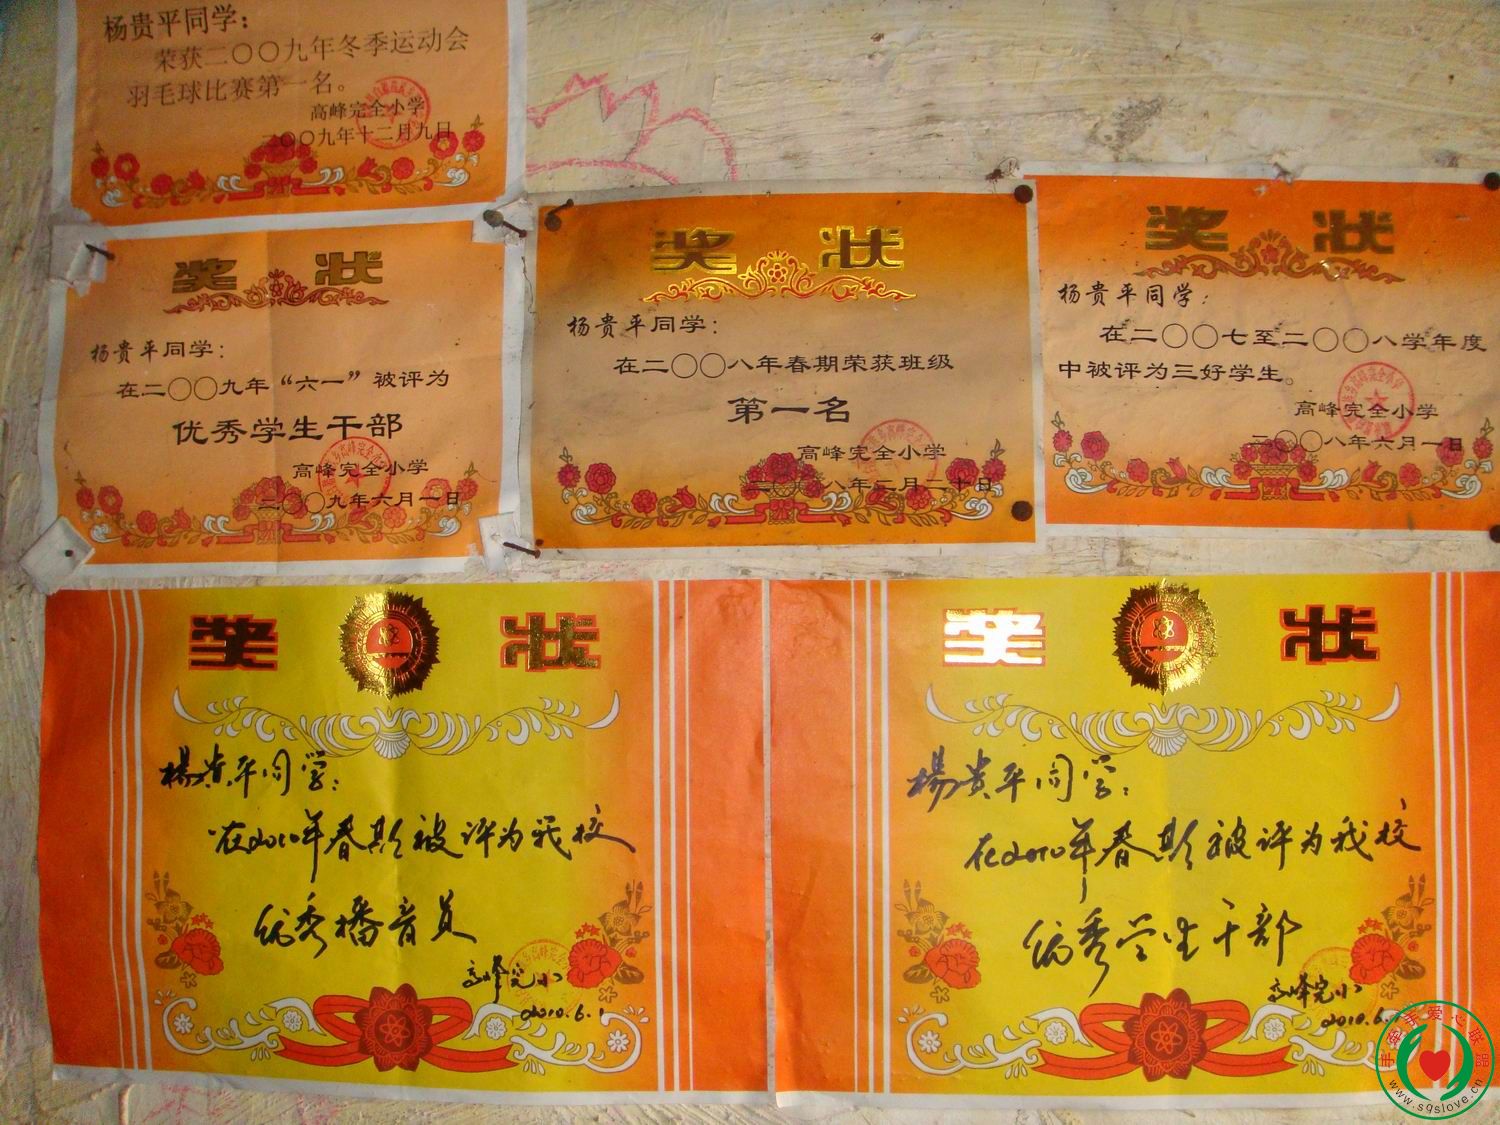 杨贵平同学：
荣获二〇〇九年冬季运动会
羽毛球比赛第一名。
高峰完全小学
二〇〇九年十二月九日
奖状
杨贵平同学：
在二〇〇九年“六一”被评为
优秀学生干部
高峰完全小学
二〇〇九年六月一日
奖状
杨贵平同学：
在二〇〇八年春期荣获班级
第一名
高峰完全小学
八年二月二十日
奖状
杨贵平同学：
在二〇〇七至二〇〇八学年度
中被评为三好学生。
高峰完全小学
二〇〇八年六月一日
奖状
楊貴平同学：
在2010年春期被评为我校
优秀播音员
高峰完小
2010.6.1
奖状
楊貴平同学：
在2010年春期被评为我校
优秀学生干部
高峰完小
2010.6.1
手牵手爱心联盟
www.sqslove.cn